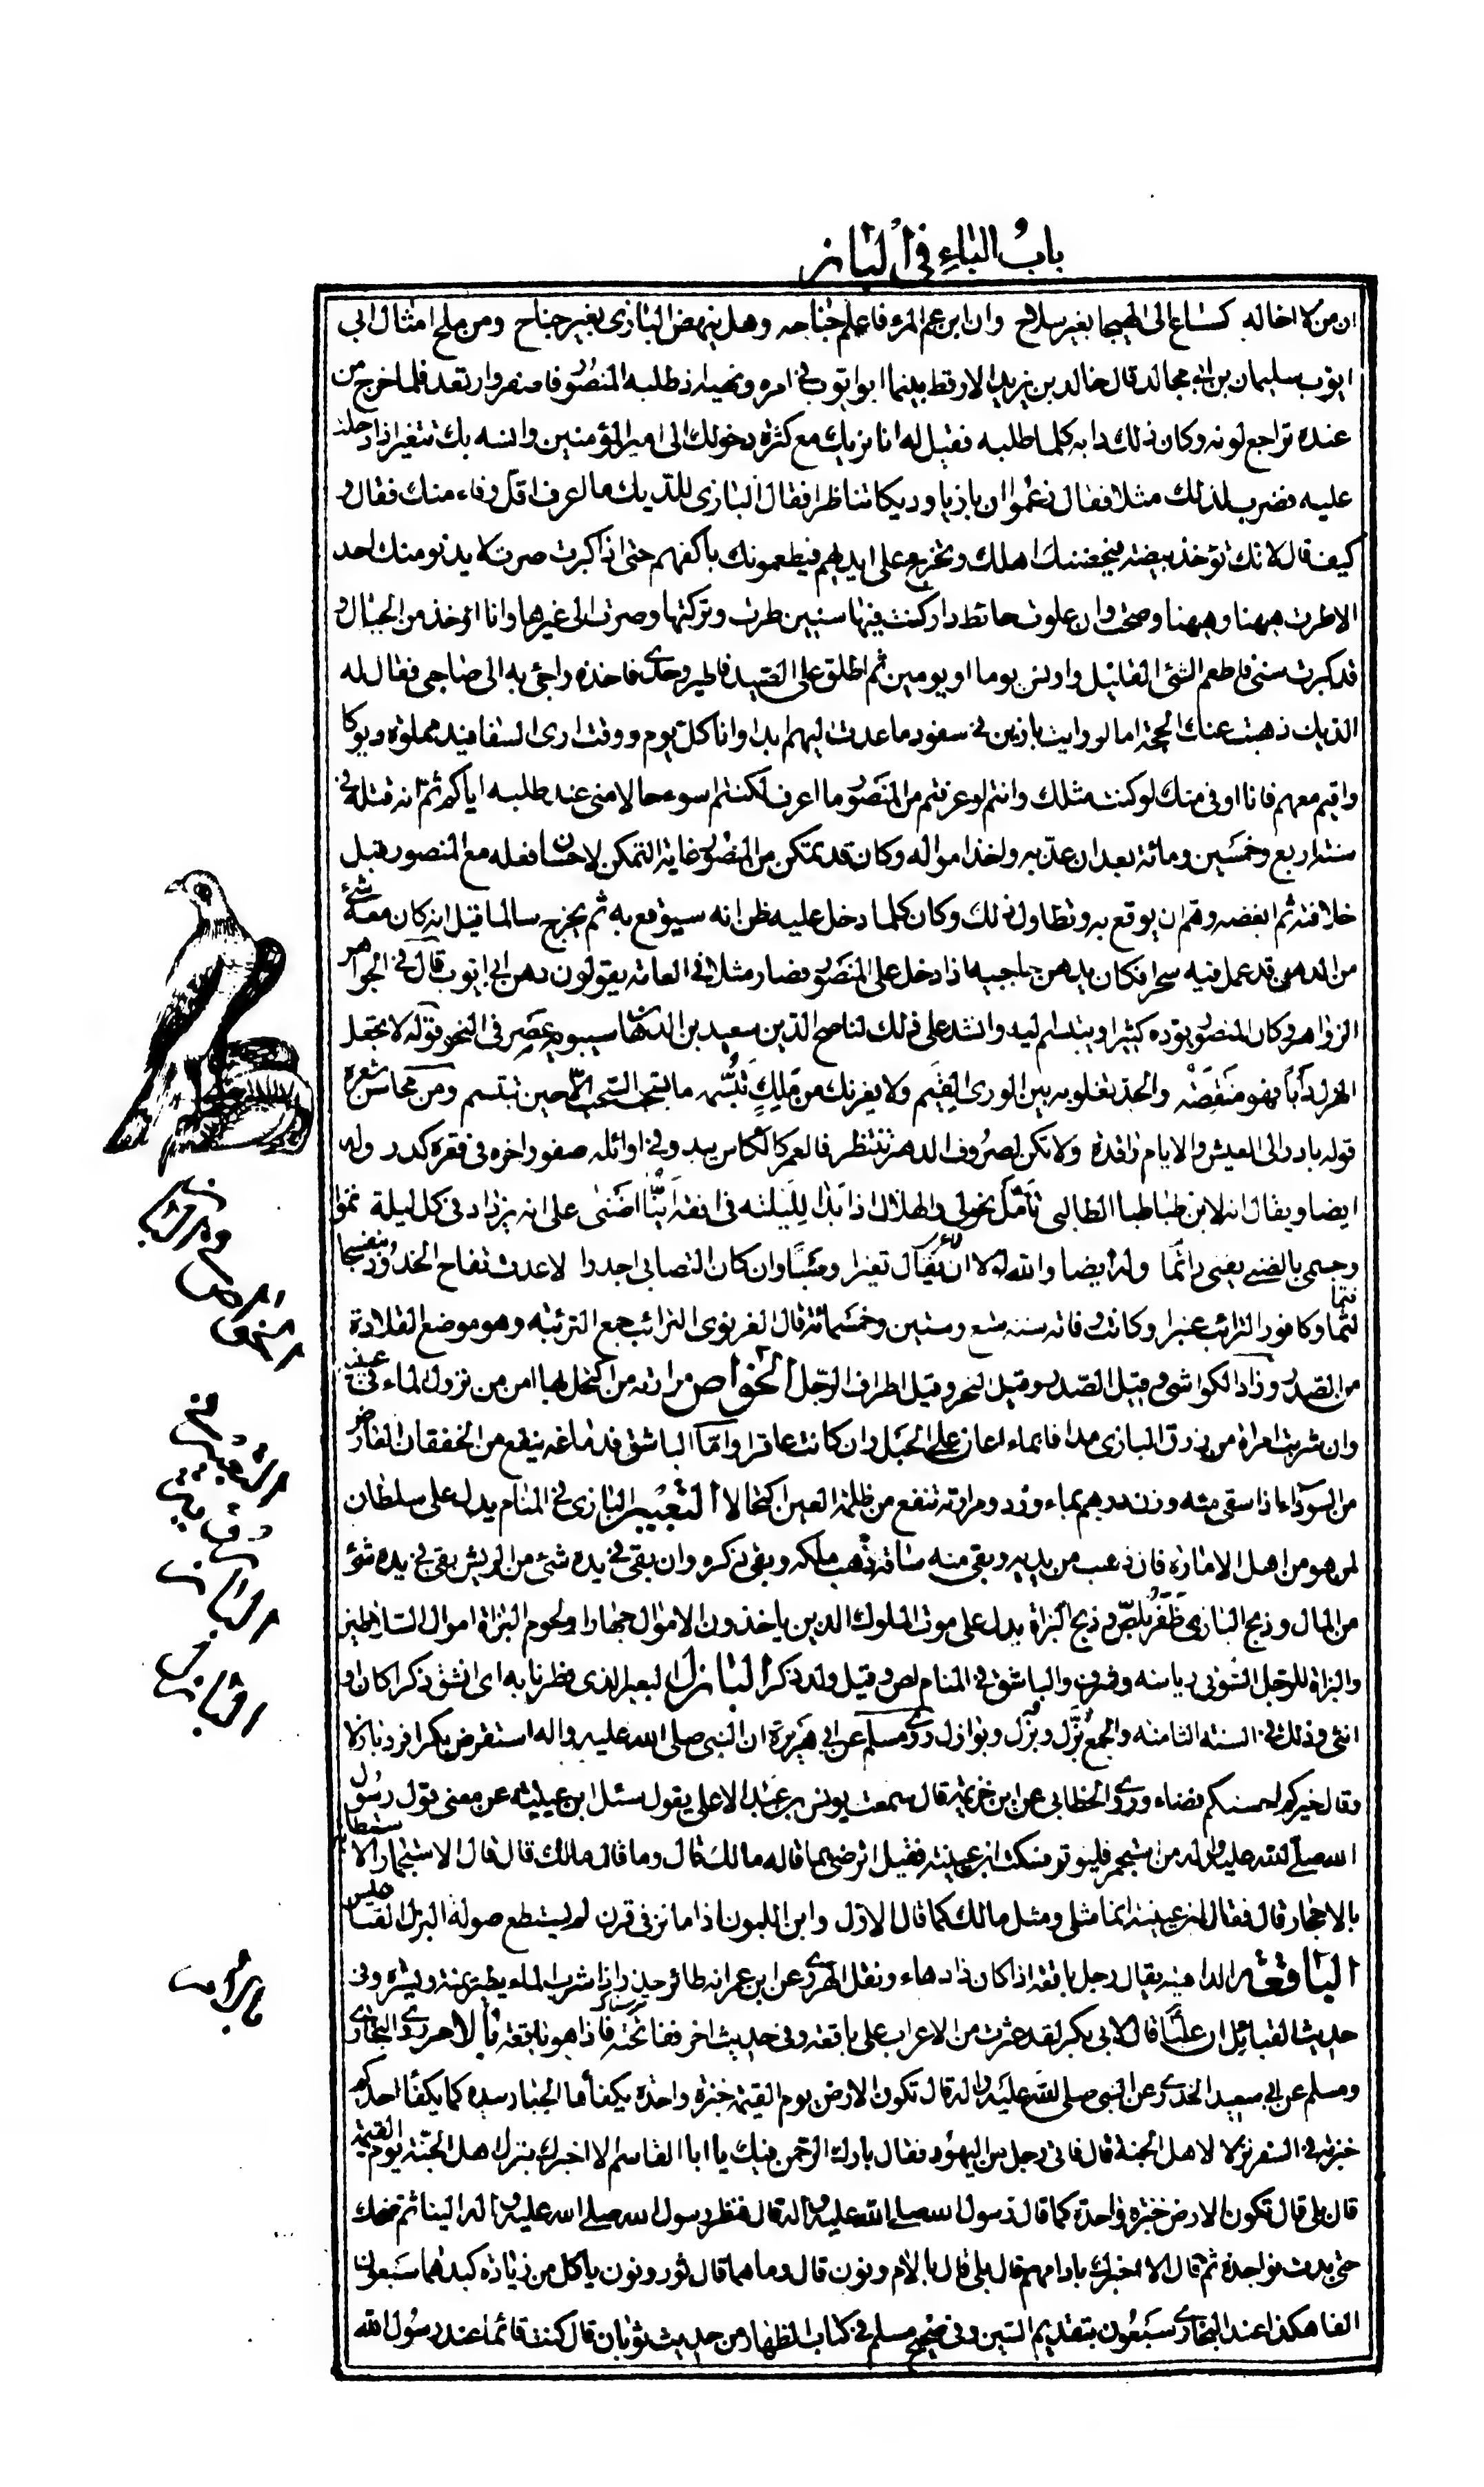 باب الباء في الباز
ان من لا اخا له كساع الى الهيجا بغير سلاح وان ابن عم المرء فاعلم جناحه وهل ينهض البازى بغير جناح ومن ملح امثال ابى
ايوب سليمان بن ابى مجالد قال خالد بن يزيد الارقط بينما ابو ايوب فى امره ونهيه اذ طلبه المنصور فاصفر وارتعد فلما خرج من
عنده تراجع لونه وكان ذلك دابه كلما طلبه فقيل له انا نريك مع كثرة دخولك الى امير المؤمنين وانسه بك تتغير اذا دخلت
عليه فضرب لذلك مثلا فقال زعموا ان بازيا وديكا تناظرا فقال البازى للديك ما اعرف اقل وفاء منك فقال و
كيف قال لانك تؤخذ بيضة فيحضنك اهلك وتخرج على ايديهم فيطعمونك باكفهم حتى اذا كبرت صرت لا يدنو منك احد
الا طرت ههنا وههنا وصحت وان علوت حائط دار كنت فيها سنين طرت وتركتها وصرت الى غيرها وانا اوخذ من الجبال و
قد كبرت سنى فاطعم الشئ القليل واونس يوما او يومين ثم اطلق على الصيد فاطير وحدى فاخذه واجئ به الى صاحبى فقال له
الديك ذهبت عنك الحجة اما لو رايت بازين فى سفود ما عدت اليهم ابدا وانا كل يوم ووقت ارى السفافيد مملوة ديوكا
واقيم معهم فانا اوفى منك لو كنت مثلك وانتم لو عرفتم من المنصور ما اعرف لكنتم اسوء حالا منى عند طلبه اياكم ثم انه قتله فى
سنة اربع وخمسين ومائة بعد ان عذبه واخذ امواله وكان قد تمكن من المنصور غاية التمكن لاحسان فعله مع المنصور قبل
خلافته ثم ابغضه وهم ان يوقع به وتطاول ذلك وكان كلما دخل عليه ظن انه سيوقع به ثم يخرج سالما قيل انه كان معه شئ
من الدهن قد عمل فيه سحر فكان يدهن حاجبيه اذا دخل على المنصور فصار مثلا فى العامة يقولون دهن ابى ايوب قال فى الجواهر
الزواهر وكان المنصور يوده كثيرا ويبتسم اليه وانشد على ذلك لناصح الدين سعيد بن الدهان سيبويه عصره فى النحو قوله لا تجعل
الهزل دأبا فهو منقصة والجد تغلو به بين الورى القيم ولا يغرنك من مليك تبسمه ما تسحب السحب الا حين تبتسم ومن محاسن شعره
قوله بادر الى العيش والايام راقدة ولا تكن لصروف الدهر تنتظر فالعمر كالكاس يبدو فى اوائله صفو واخره فى قعره كدر وله
ايضا ويقال انه لابن طباطبا الطالبى تأمل نحولى والهلال اذا بدا لليلته فى افقه اينا اضنى على انه يزداد فى كل ليلة نموا
وجسمى بالضنى يفنى دائما وله ايضا والله لولا ان يقال تغيرا وصبا وان كان التصابى اجدرا لاعدت تفاح الخدود بنفسجا
لثما وكافور الترائب عنبرا وكانت وفاته سنة تسع وستين وخمسمائة قال الغزنوى الترائب جمع التريبة وهو موضع القلادة
من الصدر وزاد الكواشى وقيل الصدر وقيل النحر وقيل اطراف الرجل الخواص مرارته من اكتحل بها امن من نزول الماء فى عينه
وان شربت امراة من ذرق البازى مدافا بماء اعان على الحبل وان كانت عاقرا واما الباشق فدماغه ينفع من الخفقان العارض
من السوداء اذا سقى منه وزن درهم بماء ورد ومرارته تنفع من ظلمة العين اكتحالا التعبير البازى فى المنام يدل على سلطان
لمن هو من اهل الامارة فان ذهب من يديه وبقى منه ساقه ذهب ملكه وبقى ذكره وان بقى فى يده شئ من الريش بقى فى يده شئ
من المال وذبح البازى ظفر بلص وذبح البزاة يدل على موت الملوك الذين ياخذون الاموال جهارا ولحوم البزاة اموال السلاطين
والبزاة للرجل السوقى رياسة وشرف والباشق فى المنام لص وقيل ولد ذكر البازل البعير الذى فطر نابه اى انشق ذكرا كان او
انثى وذلك فى السنة الثامنة والجمع بزل وبزل وبوازل روى مسلم عن ابى هريرة ان النبى صلى الله عليه واله استقرض بكرا فرد بازلا
وقال خيركم احسنكم قضاء وروى الخطابى عن ابن خزيمة قال سمعت يونس بن عبد الاعلى يقول سئل ابن عيينة عن معنى قول رسول
الله صلى الله عليه واله من استجمر فليوتر فسكت ابن عيينة فقيل اترضى بما قاله مالك قال وما قال مالك قال قال الاستجمار الاستطابة
بالاحجار قال فقال ابن عيينة انما مثلى ومثل مالك كما قال الاول وابن اللبون اذا ما لز فى قرن لم يستطع صولة البزل القناعيس
الباقعة الداهية يقال رجل باقعة اذا كان ذا دهاء ونقل الهروى عن ابن عمر انه طائر حذر اذا شرب الماء نظر يمنة ويسرة وفى
حديث القبائل ان عليا قال لابى بكر لقد عثرت من الاعراب على باقعة وفى حديث اخر ففاتحته فاذا هو باقعة بالام روى البخارى
ومسلم عن ابى سعيد الخدرى عن النبى صلى الله عليه واله قال تكون الارض يوم القيمة خبزة واحدة يكفأها الجبار بيده كما يكفأ احدكم
خبزته فى السفر نزلا لاهل الجنة قال فاتى رجل من اليهود فقال بارك الرحمن فيك يا ابا القاسم الا اخبرك بنزل اهل الجنة يوم القيمة
قال بلى قال تكون الارض خبزة واحدة كما قال رسول الله صلى الله عليه واله قال فنظر رسول الله صلى الله عليه واله الينا ثم ضحك
حتى بدت نواجذه ثم قال الا اخبرك بادامهم قال بلى قال بالام ونون قال وما هما قال ثور ونون ياكل من زيادة كبدهما سبعون
الفا هكذا عند البخارى سبعون بتقديم السين وفى صحيح مسلم فى كتاب الظهار من حديث ثوبان قال كنت قائما عند رسول الله